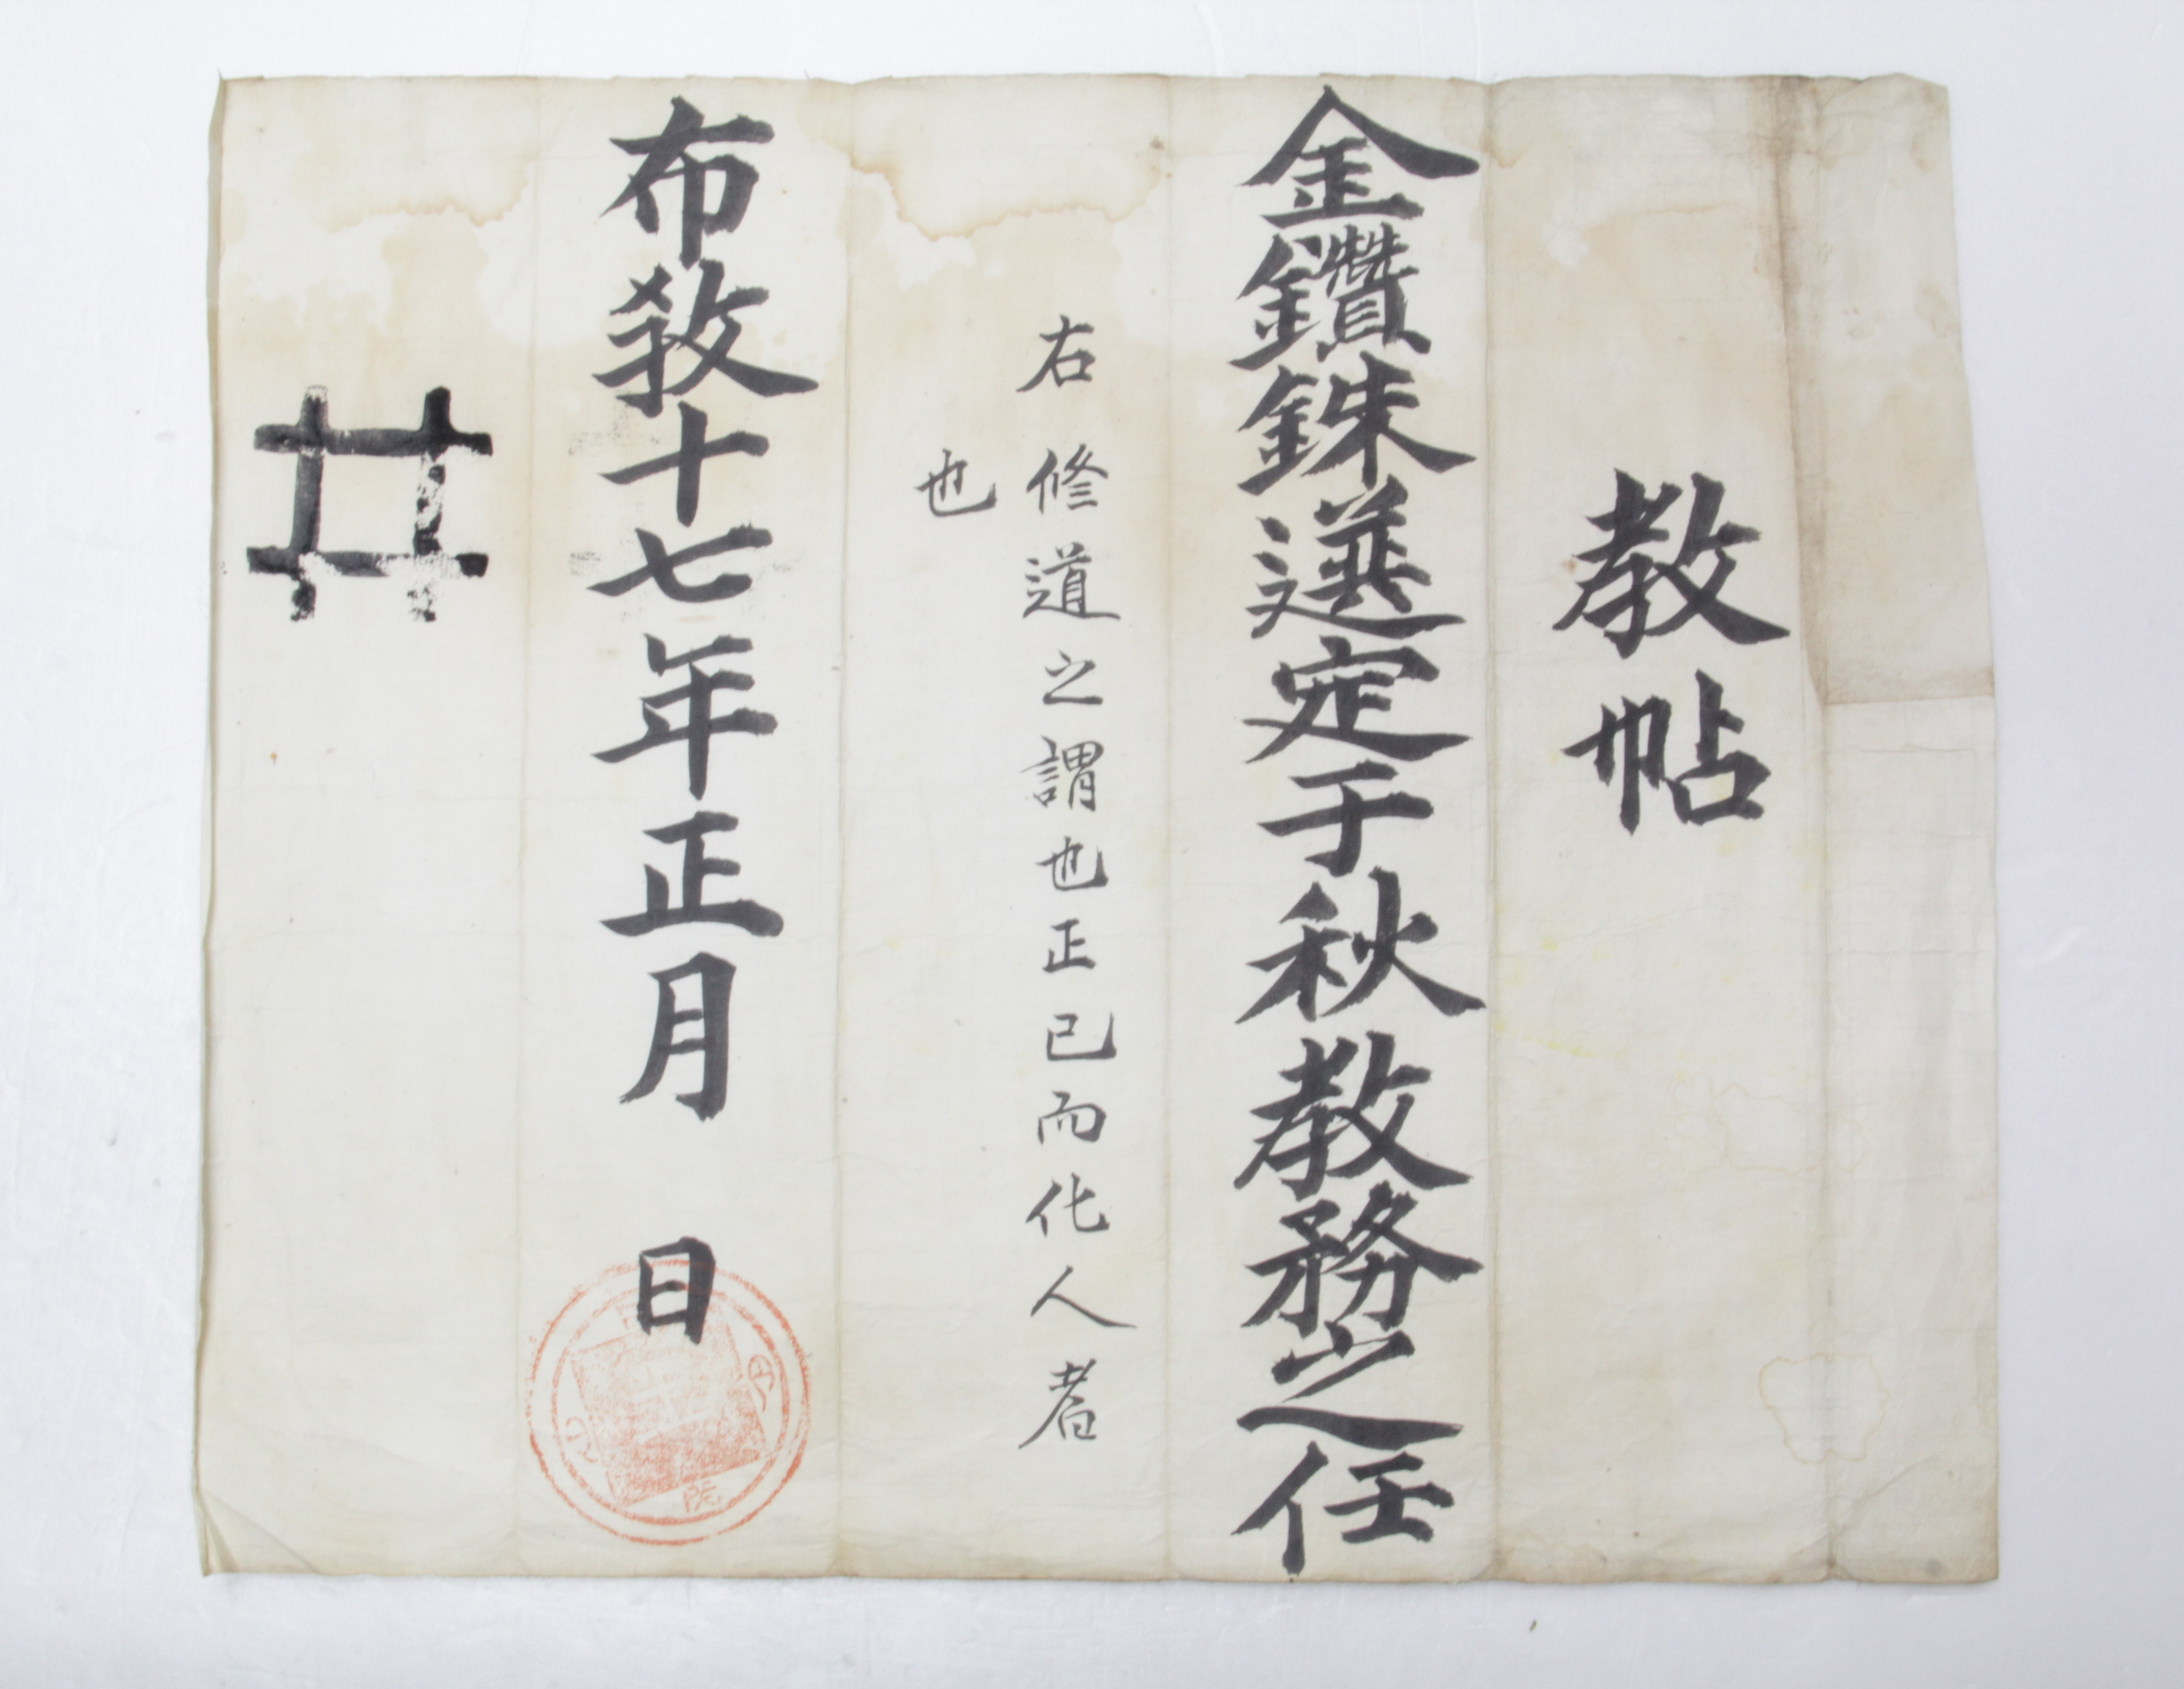 教帖
金鑽銖選定于秋教務之任
右修道之謂也正己而化人者
也
布教十七年正月　日
院